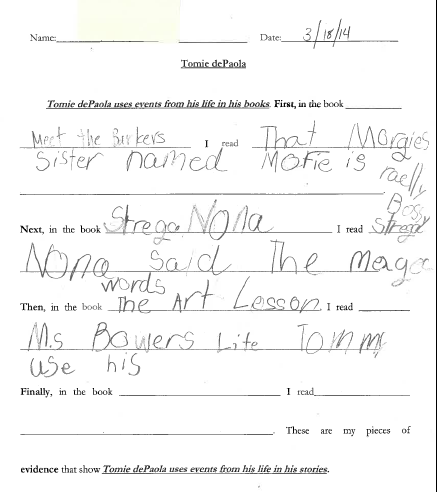 Name: Date: 3/18/14
Tomie dePaola
Tomie dePaola uses events from his life in his books. First, in the book
Meet the Barkers I read That Morgies
Sister named MOFie is raelly
Bossy
Next, in the book Strega Nona I read Strega
Nona said The magec
words
Then, in the book The Art Lesson I read
Ms Bowers Lite Tommy
use his
Finally, in the book I read
. These are my pieces of
evidence that show Tomie dePaola uses events from his life in his stories.